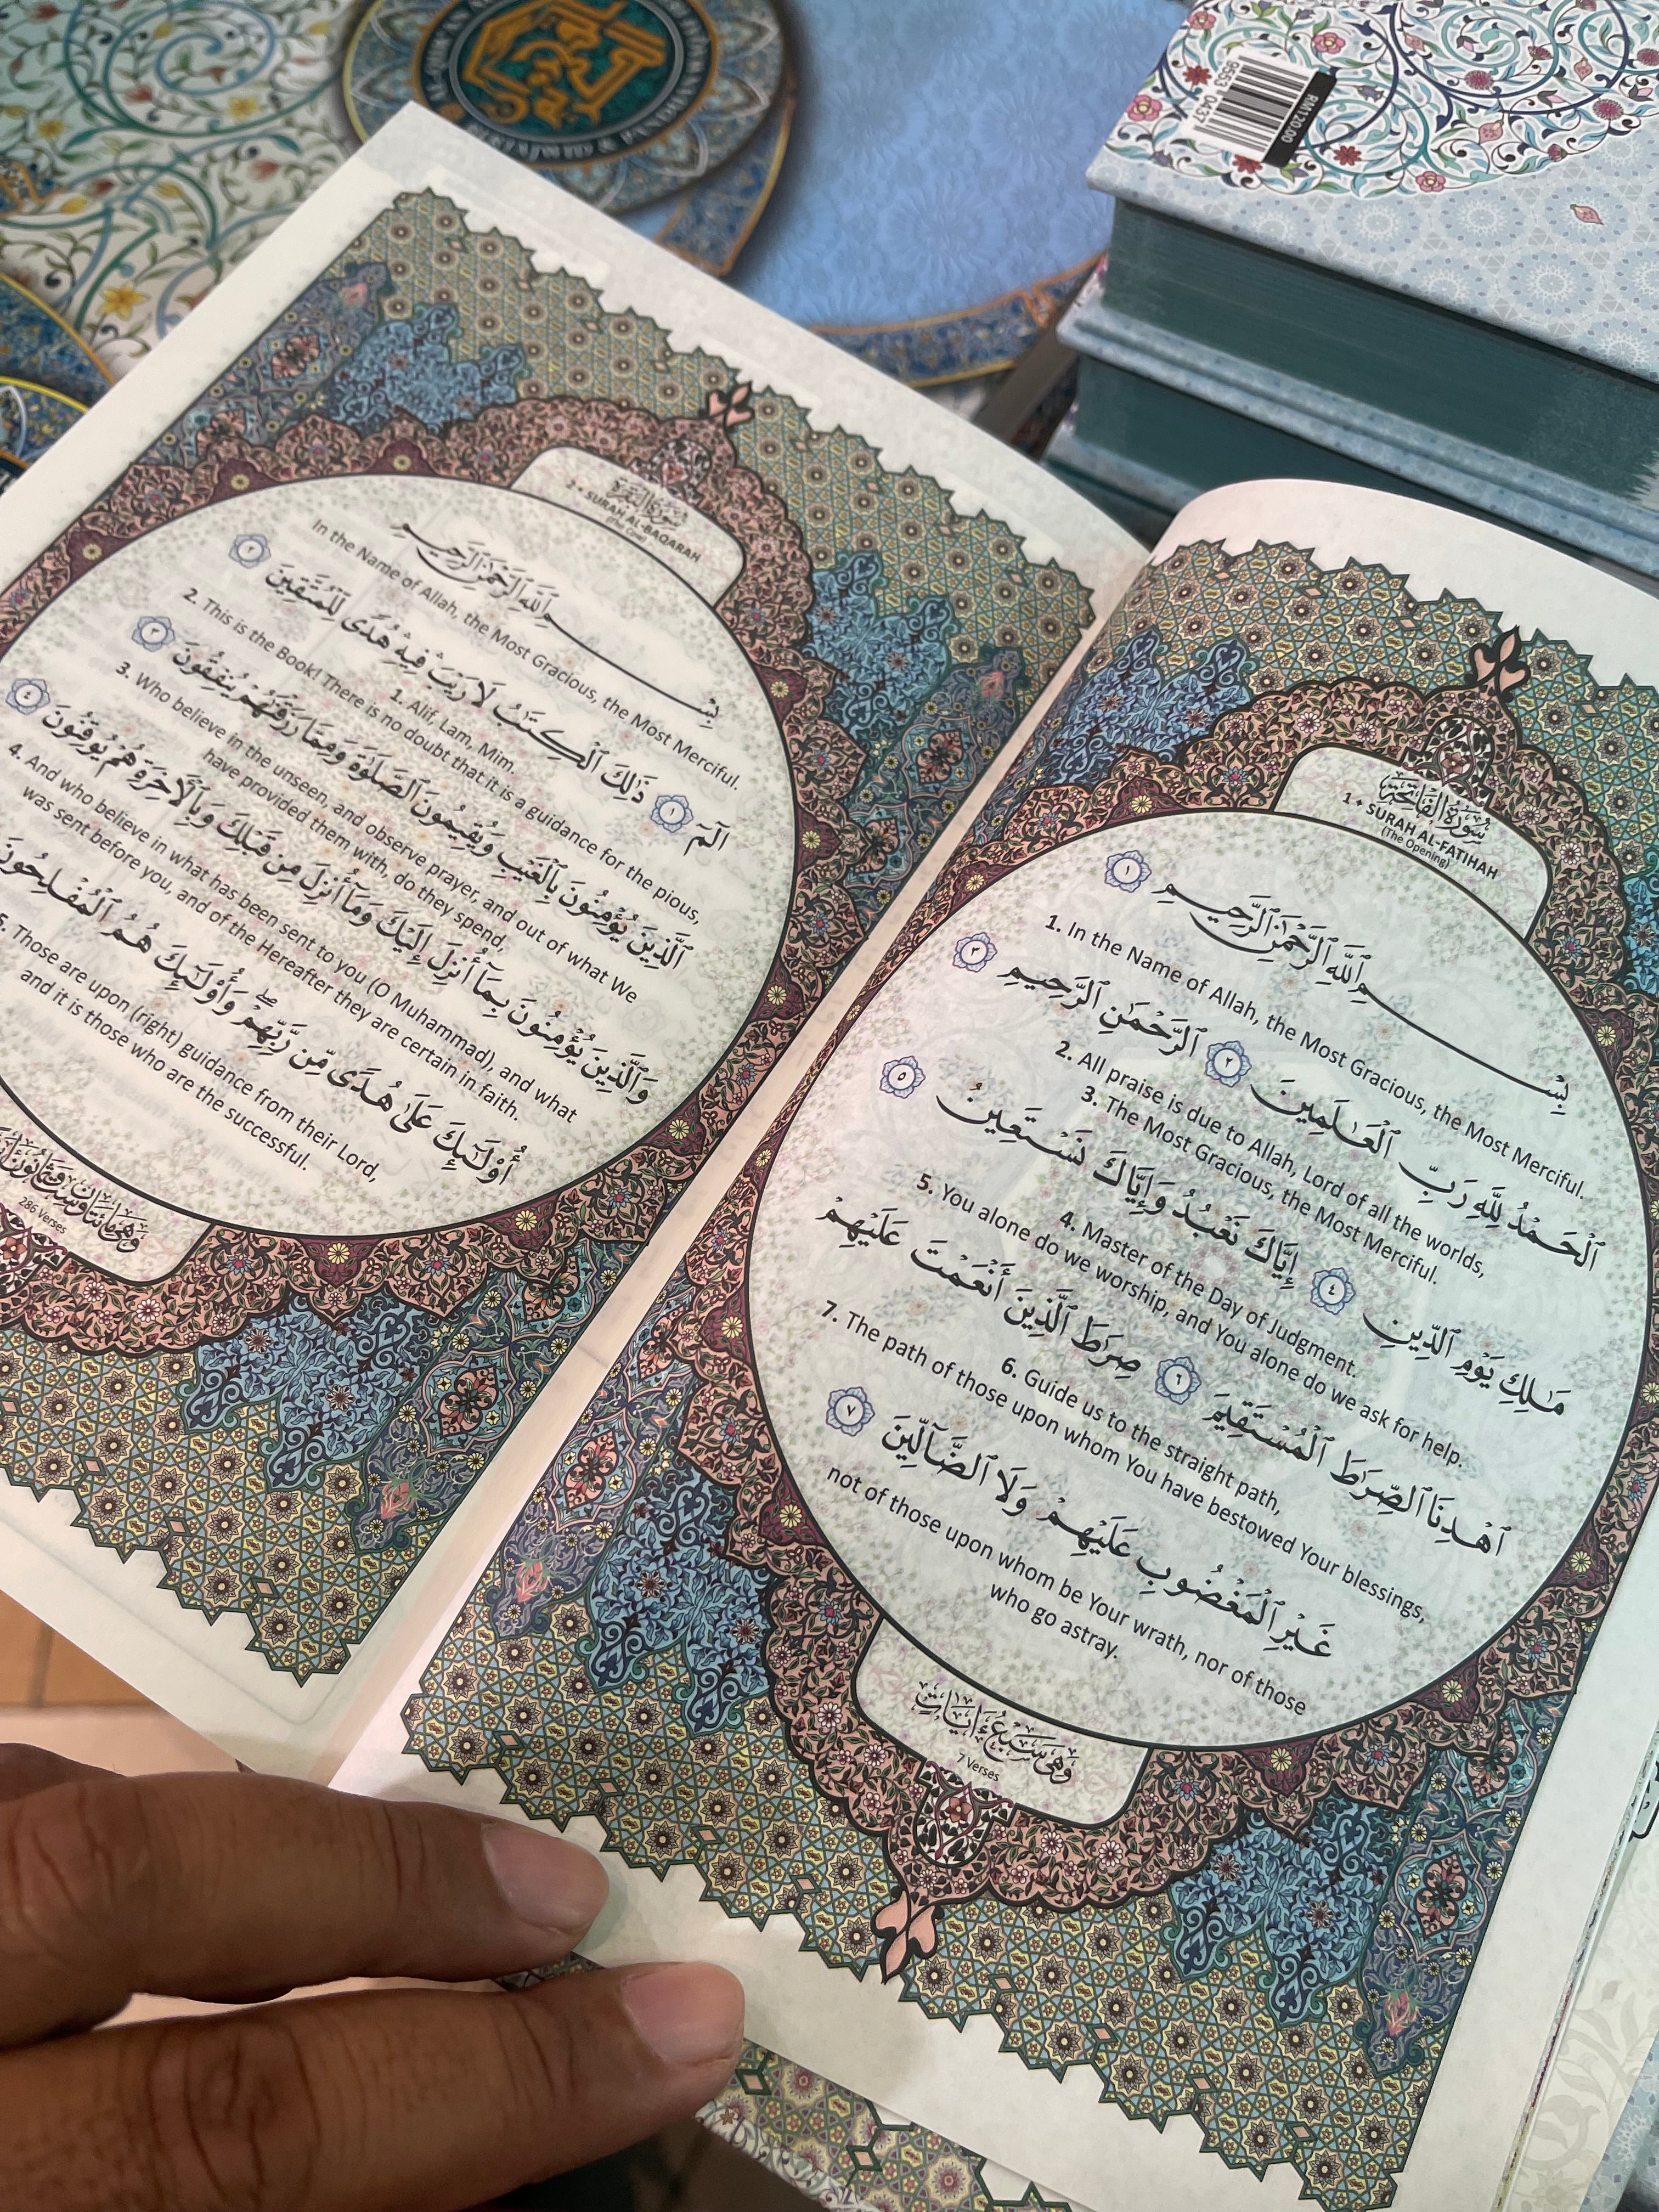 سُورَةُ الْفَاتِحَةِ
1 • SURAH AL-FATIHAH
(The Opening)
بِسْمِ ٱللَّهِ ٱلرَّحْمَٰنِ ٱلرَّحِيمِ ١
1. In the Name of Allah, the Most Gracious, the Most Merciful.
ٱلْحَمْدُ لِلَّهِ رَبِّ ٱلْعَٰلَمِينَ ٢ ٱلرَّحْمَٰنِ ٱلرَّحِيمِ ٣
2. All praise is due to Allah, Lord of all the worlds,
3. The Most Gracious, the Most Merciful.
مَٰلِكِ يَوْمِ ٱلدِّينِ ٤ إِيَّاكَ نَعْبُدُ وَإِيَّاكَ نَسْتَعِينُ ٥
4. Master of the Day of Judgment.
5. You alone do we worship, and You alone do we ask for help.
ٱهْدِنَا ٱلصِّرَٰطَ ٱلْمُسْتَقِيمَ ٦ صِرَٰطَ ٱلَّذِينَ أَنْعَمْتَ عَلَيْهِمْ
6. Guide us to the straight path,
7. The path of those upon whom You have bestowed Your blessings,
غَيْرِ ٱلْمَغْضُوبِ عَلَيْهِمْ وَلَا ٱلضَّآلِّينَ ٧
not of those upon whom be Your wrath, nor of those
who go astray.
وَهِىَ سَبْعُ ءَايَاتٍ
7 Verses
سُورَةُ الْبَقَرَةِ
2 • SURAH AL-BAQARAH
(The Cow)
بِسْمِ ٱللَّهِ ٱلرَّحْمَٰنِ ٱلرَّحِيمِ
In the Name of Allah, the Most Gracious, the Most Merciful.
الٓمٓ ١ ذَٰلِكَ ٱلْكِتَٰبُ لَا رَيْبَ ۛ فِيهِ ۛ هُدًى لِّلْمُتَّقِينَ ٢
1. Alif, Lam, Mim.
2. This is the Book! There is no doubt that it is a guidance for the pious,
ٱلَّذِينَ يُؤْمِنُونَ بِٱلْغَيْبِ وَيُقِيمُونَ ٱلصَّلَوٰةَ وَمِمَّا رَزَقْنَٰهُمْ يُنفِقُونَ ٣
3. Who believe in the unseen, and observe prayer, and out of what We
have provided them with, do they spend,
وَٱلَّذِينَ يُؤْمِنُونَ بِمَآ أُنزِلَ إِلَيْكَ وَمَآ أُنزِلَ مِن قَبْلِكَ وَبِٱلْءَاخِرَةِ هُمْ يُوقِنُونَ ٤
4. And who believe in what has been sent to you (O Muhammad), and what
was sent before you, and of the Hereafter they are certain in faith.
أُو۟لَٰٓئِكَ عَلَىٰ هُدًى مِّن رَّبِّهِمْ ۖ وَأُو۟لَٰٓئِكَ هُمُ ٱلْمُفْلِحُونَ
5. Those are upon (right) guidance from their Lord,
and it is those who are the successful.
286 Verses
RM120.00
9553 0437